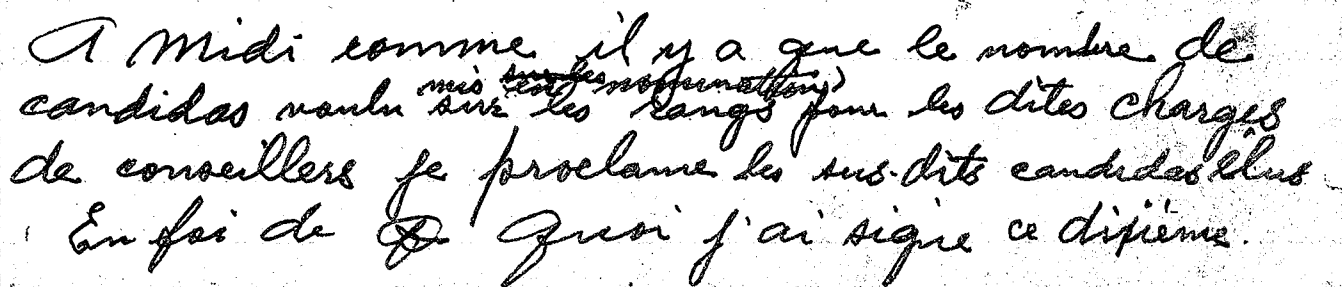 A Midi comme il y a que le nombre de
candidas voulu mis sur les rangs pour les dites charges
de conseillers je proclame les sus-dits candidas élus
En foi de Quoi j'ai signé ce dixième.